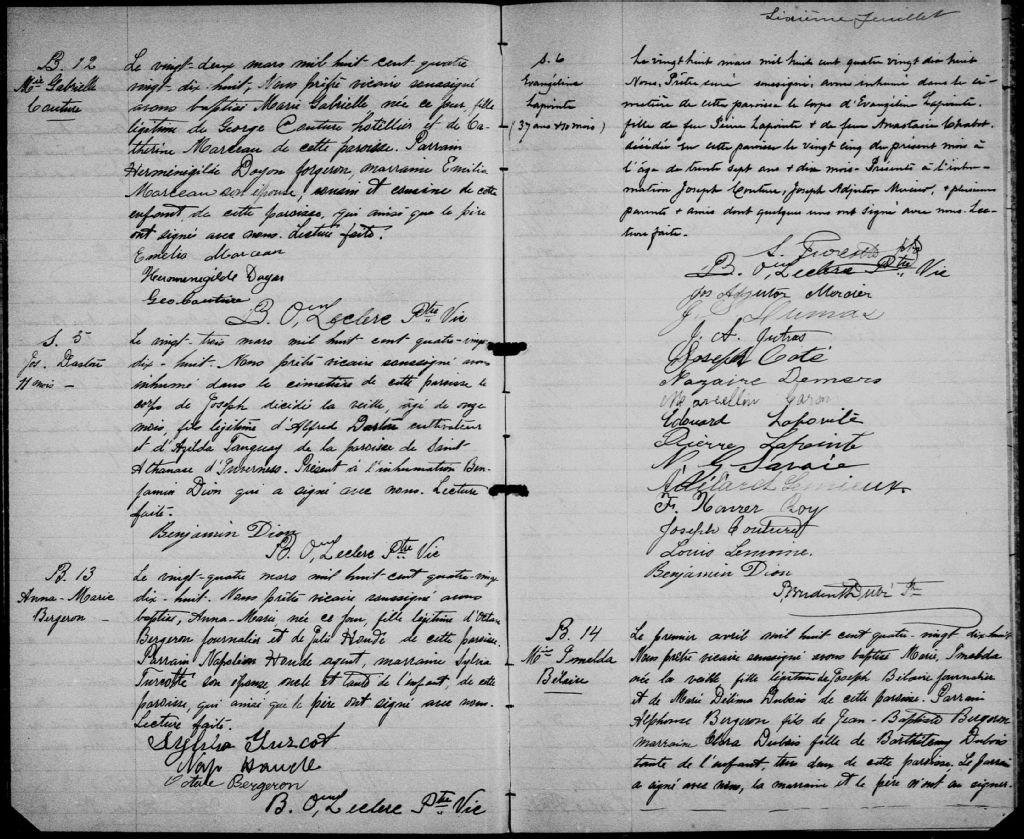 B. 12
Mie Gabrielle
Couture
Le vingt-deux mars mil huit cent quatre
vingt-dix-huit, Nous prêtre vicaire soussigné
avons baptisé Marie Gabrielle, née ce jour, fille
légitime de George Couture hôtellier et de Ca-
therine Marceau de cette paroisse. Parrain
Herménégilde Doyon forgeron, marraine Emilia
Marceau son épouse, cousin et cousine de cette
enfant de cette paroisse, qui ainsi que le père
ont signé avec nous. Lecture faite.
Emelia Marceau
Heromenegilde Doyon
Geo Couture
B. O. Leclerc Ptre Vic
S. 5
Jos. Dastou
11 mois -
Le vingt-trois mars mil huit cent quatre-vingt
dix-huit. Nous prêtre vicaire soussigné avons
inhumé dans le cimetière de cette paroisse le
corps de Joseph décédé la veille, âgé de onze
mois, fils légitime d'Alfred Dastou cultivateur
et d'Azilda Tanguay de la paroisse de Saint
Athanase d'Inverness. Présent à l'inhumation Ben-
jamin Dion qui a signé avec nous. Lecture
faite.
Benjamin Dion
B. O. Leclerc Ptre Vic
B. 13
Anna-Marie
Bergeron -
Le vingt-quatre mars mil huit cent quatre-vingt
dix-huit. Nous prêtre vicaire soussigné avons
baptisé, Anna-Marie, née ce jour, fille légitime d'Octave
Bergeron journalier et de Julie Houde de cette paroisse.
Parrain Napoléon Houde agent, marraine Sylvia
Turcotte son épouse, oncle et tante de l'enfant, de cette
paroisse, qui ainsi que le père ont signé avec nous.
Lecture faite.
Nap Houde
Octave Bergeron
B. O. Leclerc Ptre Vic
Sixième feuillet
S. 6
Evangéline
Lapointe
(37 ans & 10 mois)
Le vingt huit mars mil huit cent quatre vingt dix huit
Nous, Prêtre curé soussigné, avons inhumé dans le ci-
metière de cette paroisse le corps d'Evangéline Lapointe.
fille de feu Pierre Lapointe & de feue Anastasie Chabot.
décédée en cette paroisse le vingt cinq du présent mois à
l'âge de trente sept ans & dix mois. Présents à l'inhu-
mation Joseph Couture, Joseph Adjutor Mercier, & plusieurs
parents & amis dont quelques uns ont signé avec nous. Lec-
ture faite.
B. O. Leclerc Ptre Vic
Jos Adjutor Mercier
J. Dumas
J. A. Jutras
Joseph Coté
Nazaire Demers
Marcellin Caron
Edouard Lapointe
Pierre Lapointe
N. G. Savoie
Adélard Lemieux
F. Xavier Roy
Joseph Couture
Louis Lemoine.
Benjamin Dion
B. 14
Mie Imelda
Bélaire
Le premier avril mil huit cent quatre-vingt dix-huit
Nous prêtre vicaire soussigné avons baptisé Marie, Imelda
née la veille fille légitime de Joseph Bélaire journalier
et de Marie Délima Dubois de cette paroisse. Parrain
Alphonse Bergeron fils de Jean-Baptiste Bergeron
marraine Clara Dubois fille de Barthélemy Dubois
tante de l'enfant tous deux de cette paroisse. Le parrain
a signé avec nous, la marraine et le père n'ont su signer.